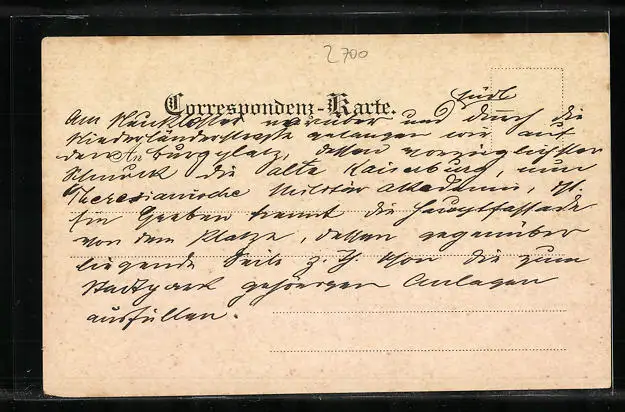 2700
Correspondenz-Karte.
südl
Am Neukloster vorüber und durch die
Niederländerstrasse gelangen wir auf
den Burgplatz, dessen vorzüglichster
Schmuck die alte Kaiserburg, nun
Theresianische Militär Akademie, ist.
Ein Graben trennt die Hauptfassade
von dem Platze, dessen gegenüber
liegende Seite z. T. schon die zum
Stadtpark gehoerigen Anlagen
ausfüllen.